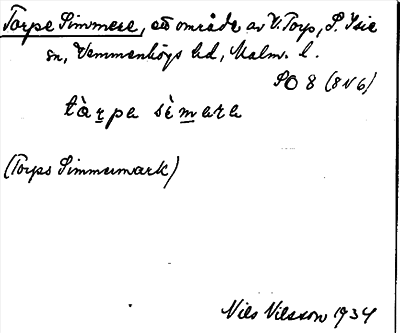 Torpe Simmere, ett område av V. Torp, Ö. Isie
sn, Vemmenhögs hd, Malm. l.
SO 8 (8 N 6)
tàr̲pa sèm̲ara
(Torps Simmermark)
Nils Nilsson 1934